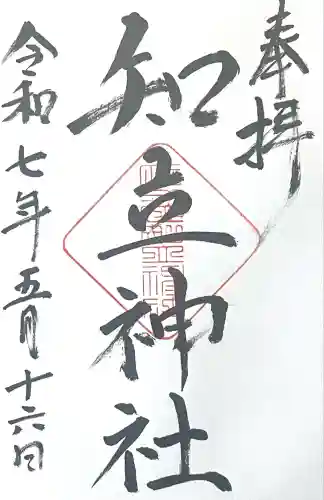 奉拝
知立神社
令和七年五月十六日